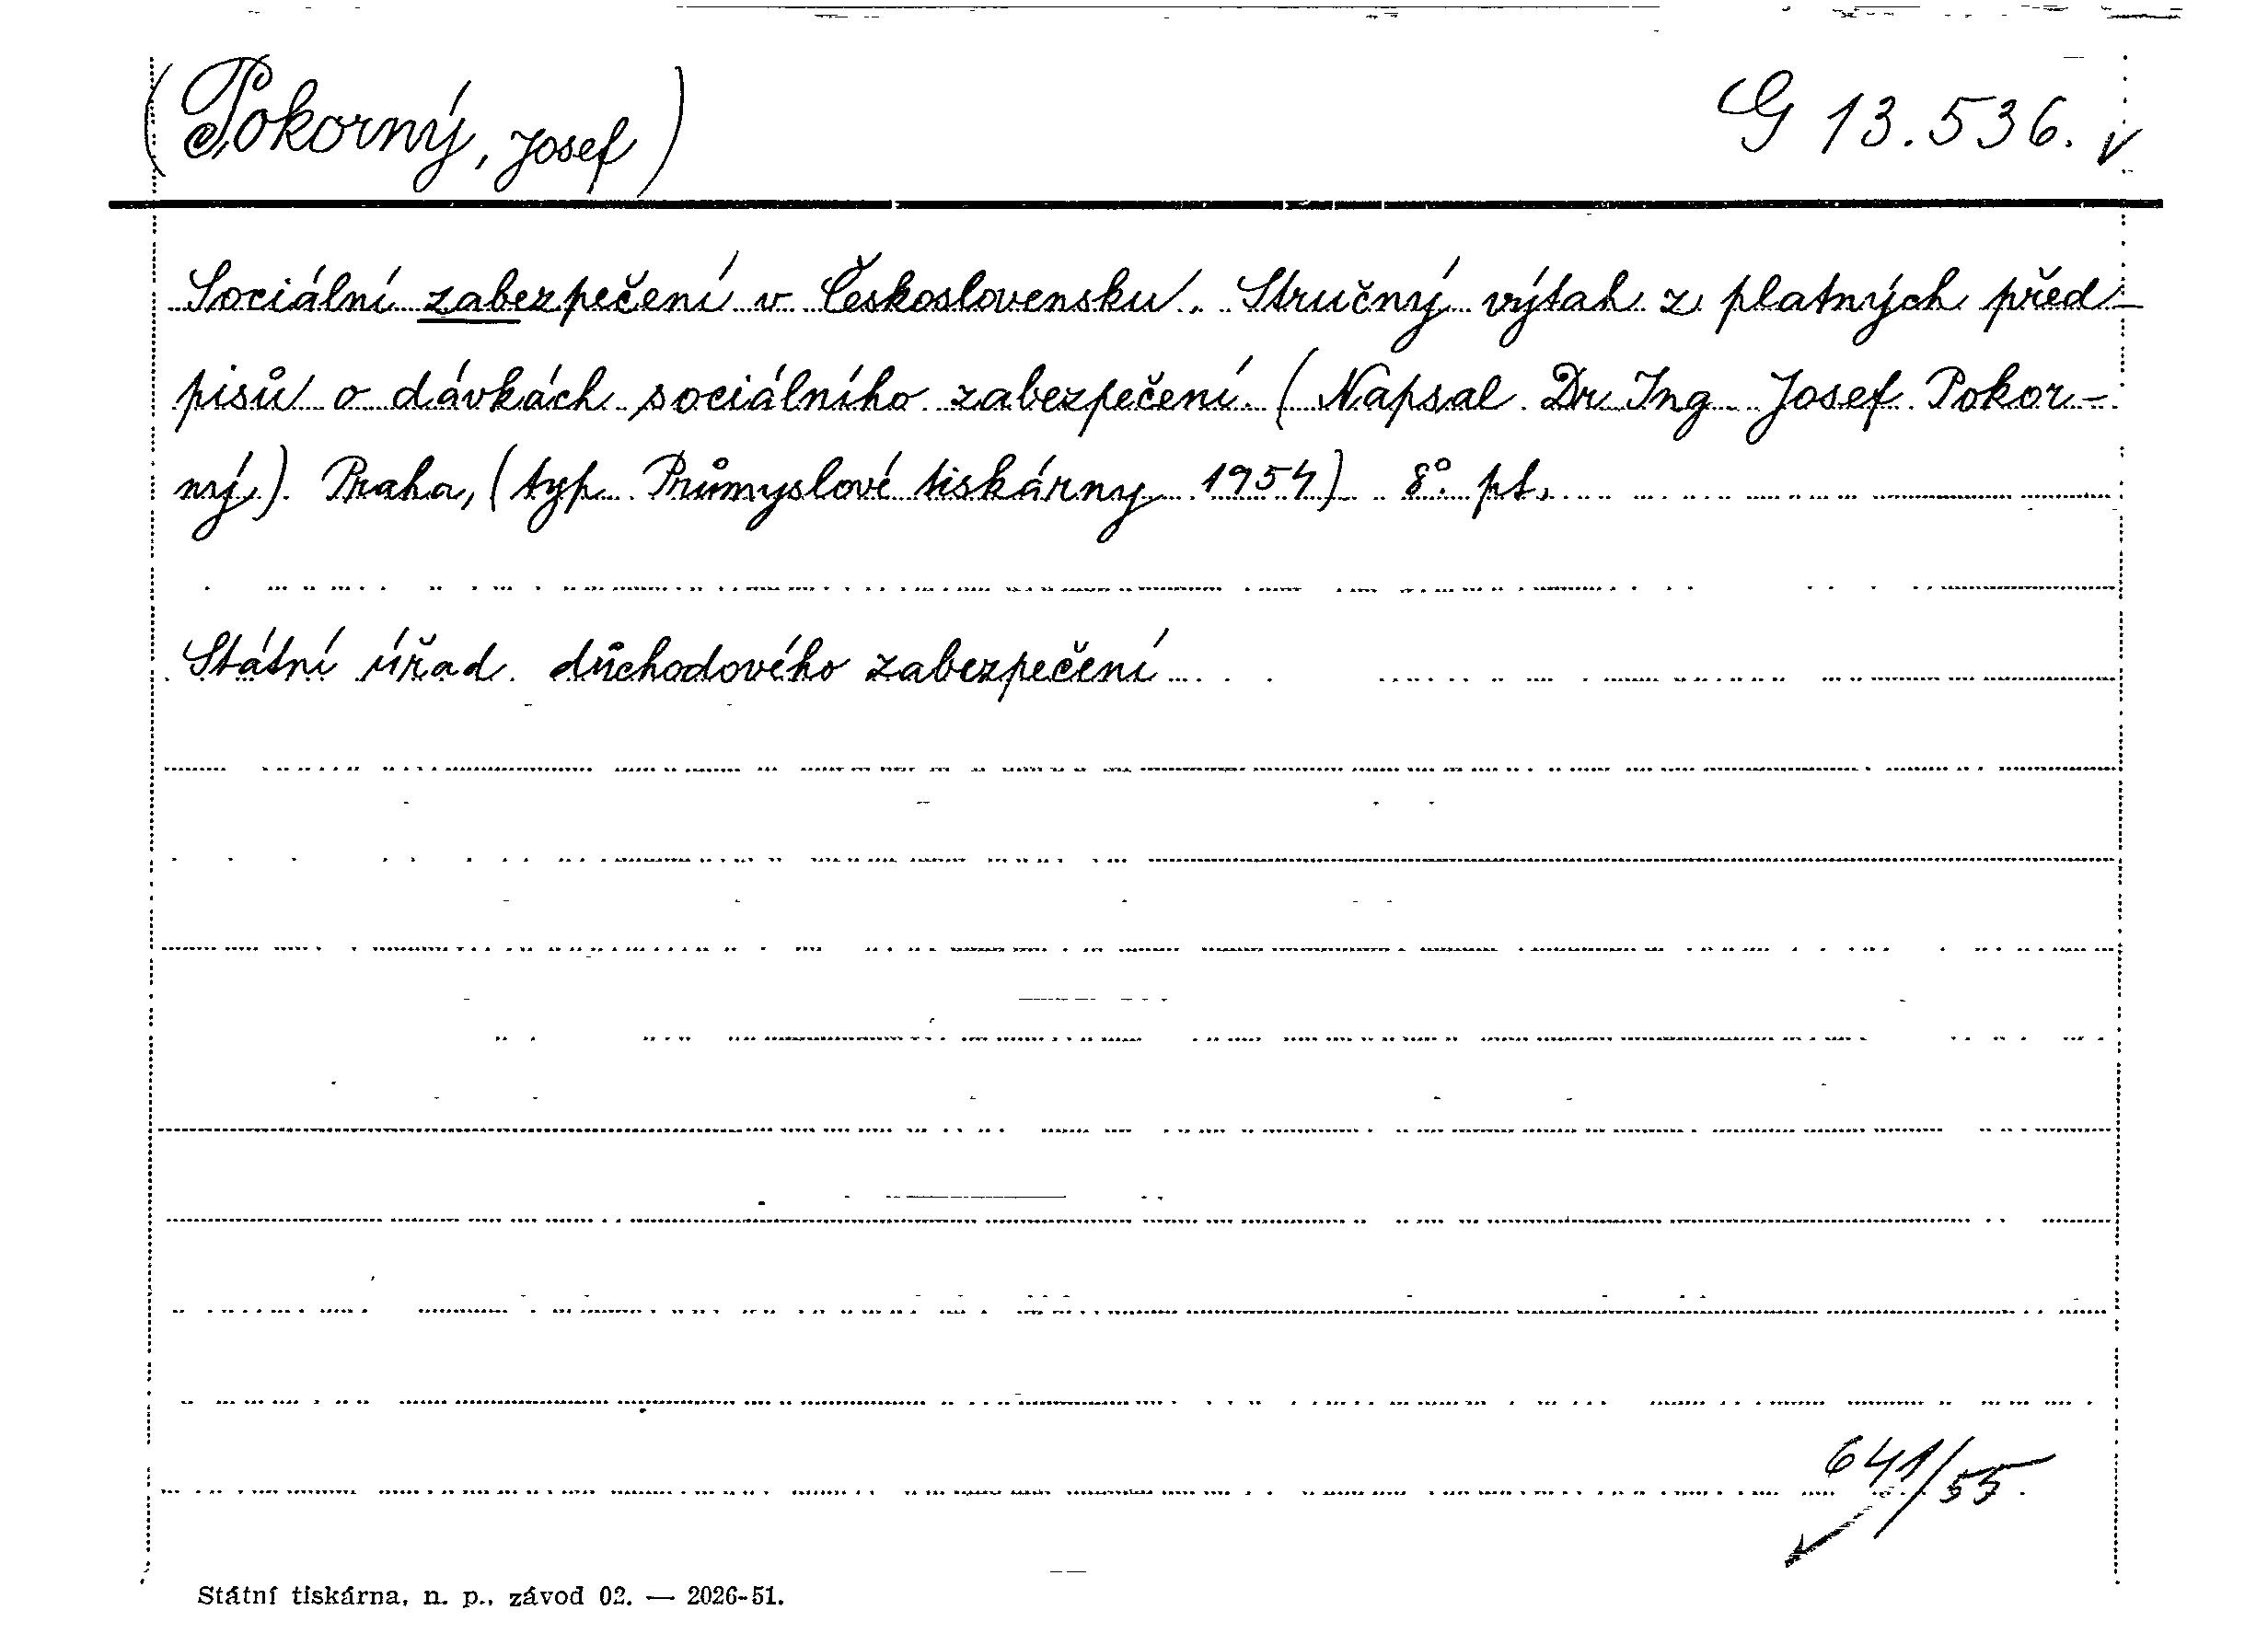 (Pokorný, Josef) G 13.536. v
Sociální zabezpečení v Československu. Stručný výtah z platných před-
pisů o dávkách sociálního zabezpečení. (Napsal Dr Ing Josef Pokor-
ný). Praha, (typ. Průmyslové tiskárny 1954) 8° pt.
Státní úřad důchodového zabezpečení
641/55.
Státní tiskárna, n. p., závod 02. — 2026-51.